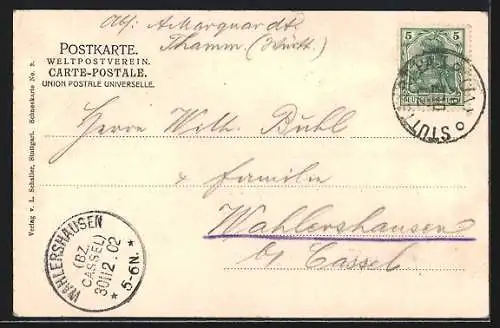 Abs: A. Marquardt.
Thamm. (Württ.)
POSTKARTE.
WELTPOSTVEREIN.
CARTE-POSTALE.
UNION POSTALE UNIVERSELLE.
5 5
Herrn Wilh. Buhl
& Familie
Wahlershausen
bz Cassel
WAHLERSHAUSEN
(BZ.
CASSEL)
30 12. 02
* 5-6N. *
STUT
Verlag v. L. Schaller, Stuttgart. Schneekarte No. 3.